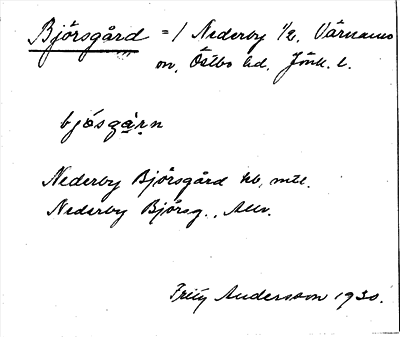 Björsgård = / Nederby 1/2, Värnamo
sn, Östbo hd, Jönk. l.
bjǻsgà̤ṛn
Nederby Björsgård kb, mtl.
Nederby Björsg.,
Andersson 1930.